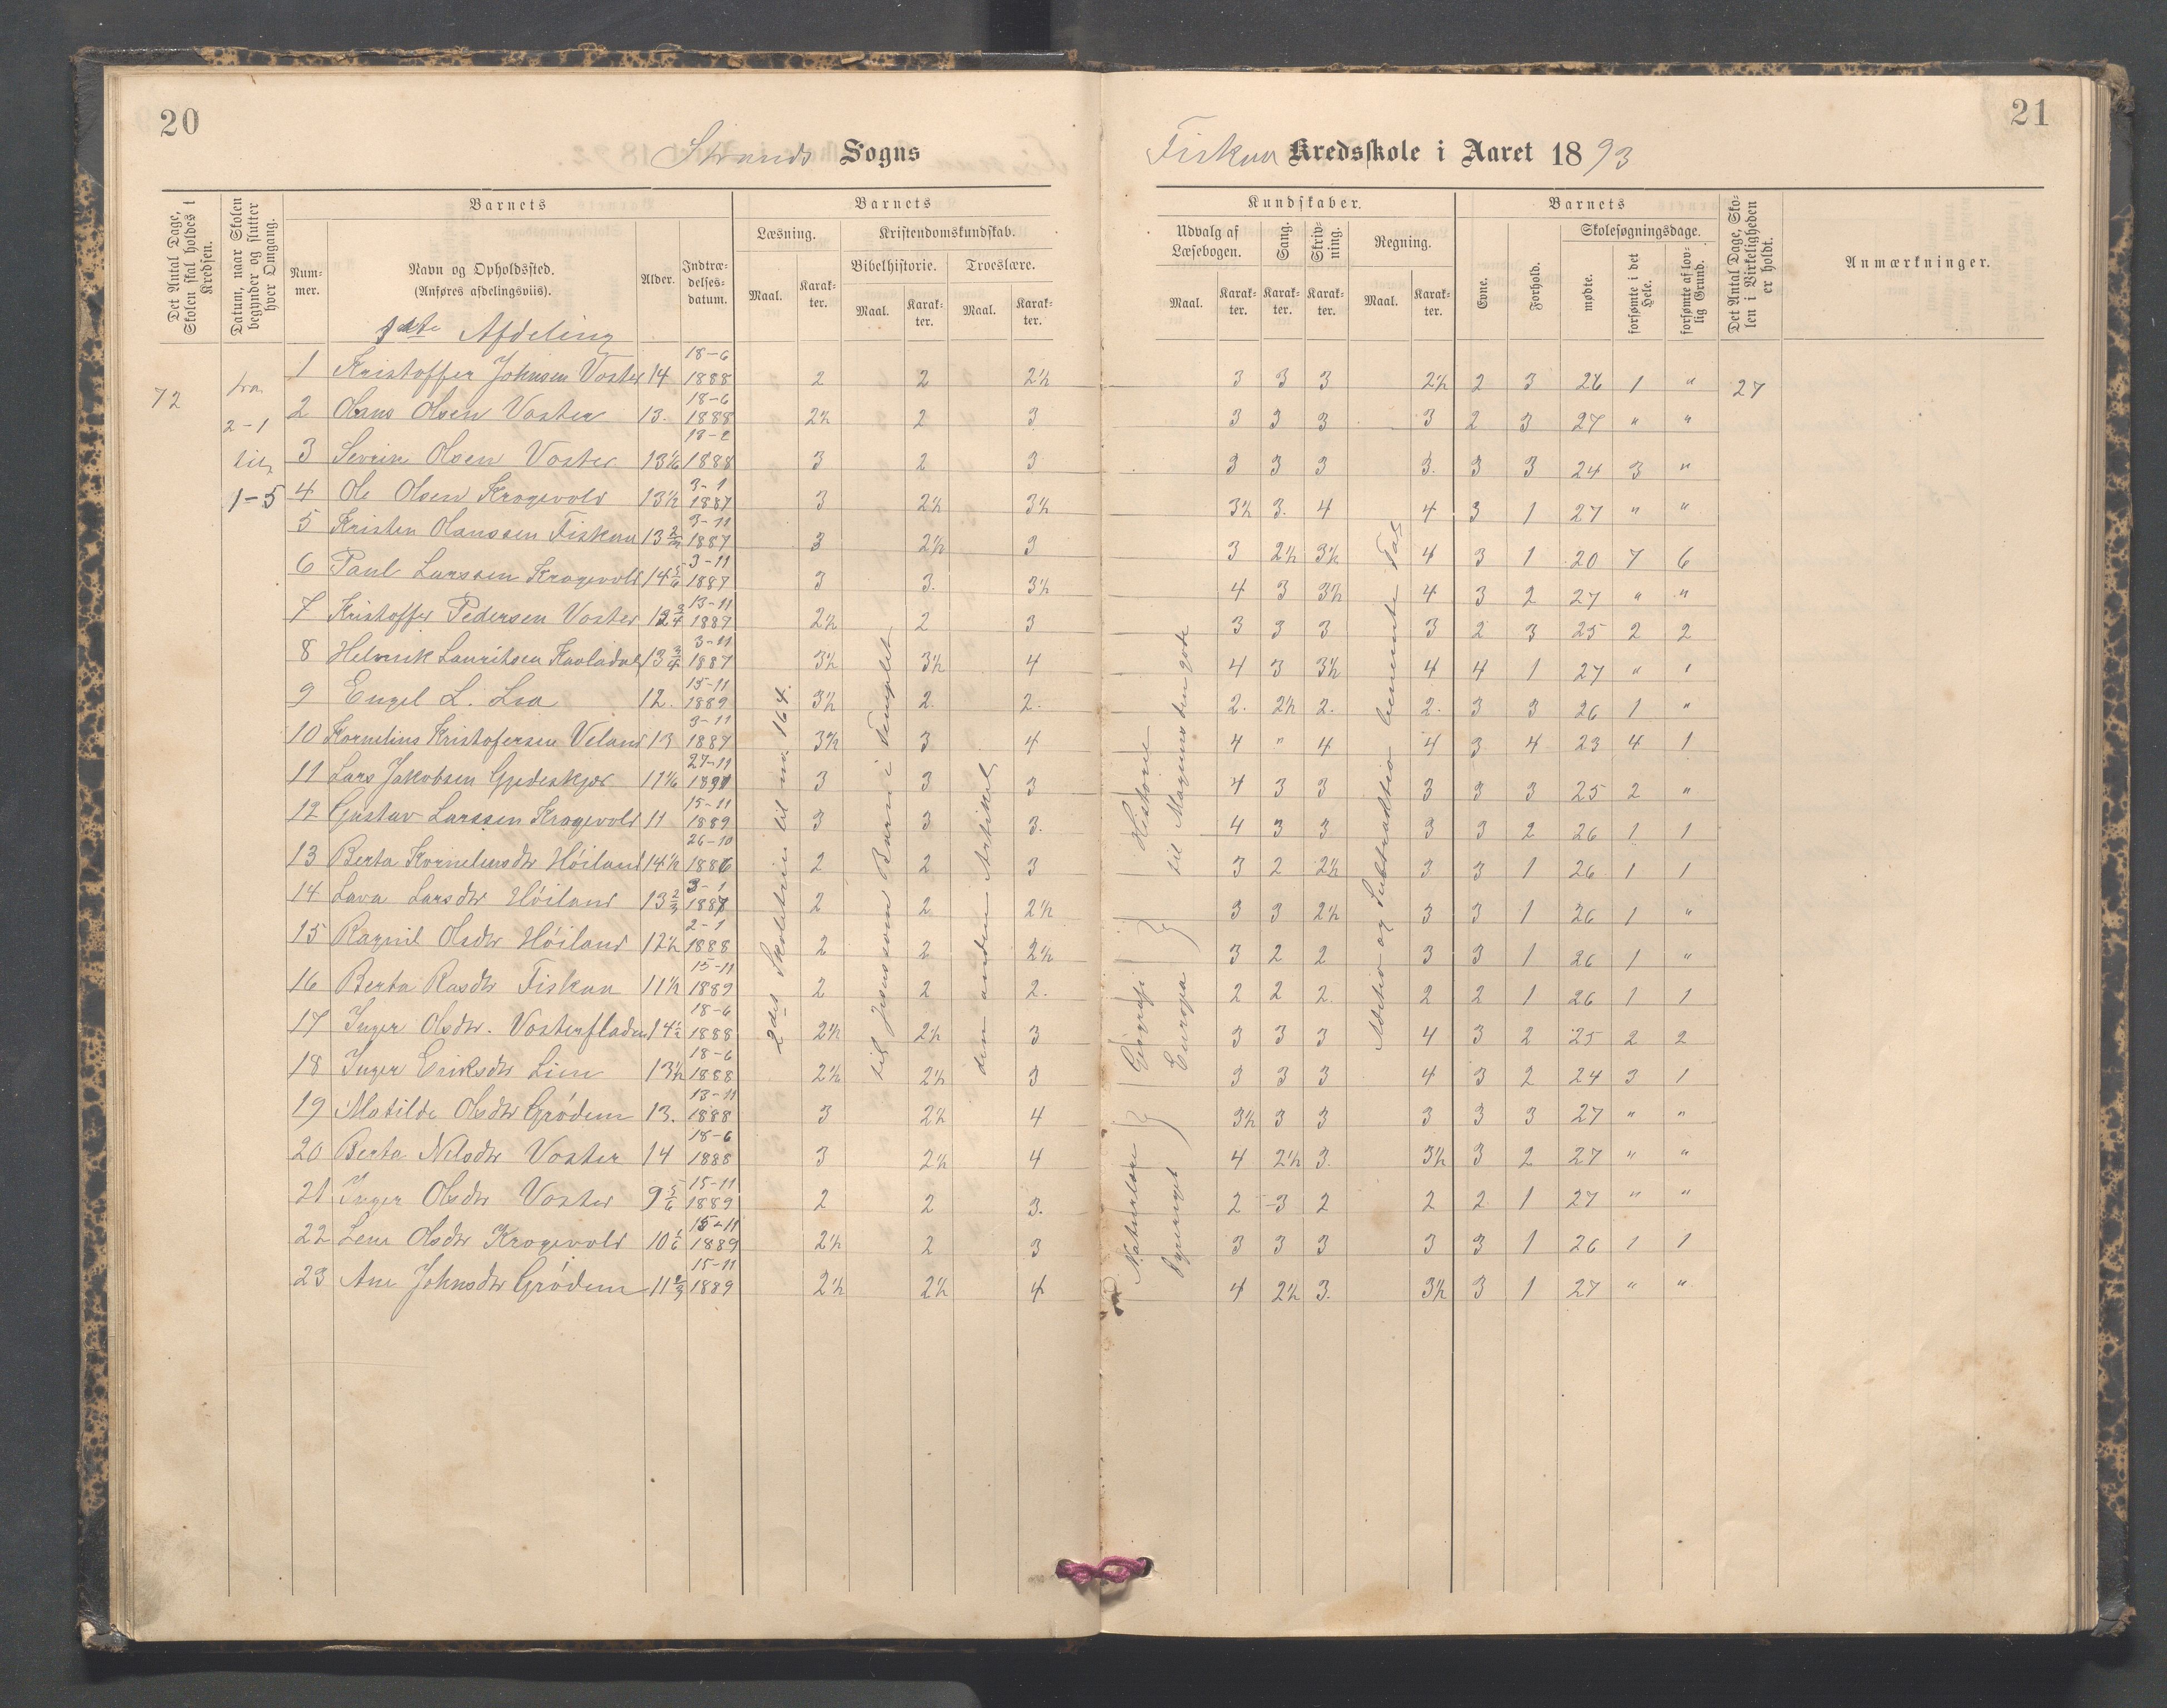 20
21
Strands Sogns
Fiskaa Kredsskole i Aaret 1893
Det Antal Dage, Skolen skal holdes i Kredsen.
Datum, naar Skolen begynder og slutter hver Omgang.
Barnets
Num-mer.
Navn og Opholdssted.
(Anføres afdelingsviis).
Alder.
Indtræ-delses-datum.
Barnets
Læsning.
Maal.
Karak-ter.
Kristendomskundskab.
Bibelhistorie.
Maal.
Karak-ter.
Troeslære.
Maal.
Karak-ter.
Kundskaber.
Udvalg af Læsebogen.
Maal.
Karak-ter.
Sang.
Karak-ter.
Skriv-ning.
Karak-ter.
Regning.
Maal.
Karak-ter.
Barnets
Evne.
Forhold.
Skolesøgningsdage.
mødte.
forsømte i det Hele.
forsømte af lov-lig Grund.
Det Antal Dage, Sko-len i Virkeligheden er holdt.
Anmærkninger.
Afdeling
72
fra
2-1
til
1-5
1 Kristoffer Johnsen Voster 14 18-6 1888 2 2 2½ 3 3 3 2½ 2 3 26 1 " 27
2 Olaus Olsen Voster 13. 18-6 1888 2½ 2 3 3 3 3 3 2 3 27 " "
3 Severin Olsen Voster 13 1/6 18-2 1888 3 2 3 3 3 3 3. 3 3 24 3 "
4 Ole Olsen Krogevold 13½ 3-1 1887 3 2½ 3½ 3½ 3. 4 4 3 1 27 " "
5 Kristen Olaussen Fiskaa 13 2/3 3-11 1887 3 2½ 3 3 2½ 3½ 4 3 1 20 7 6
6 Paul Larssen Krogevold 14 5/6 3-11 1887 3 3. 3½ 4 3 3½ 4 3 2 27 " "
7 Kristoffer Pedersen Voster 12 3/4 13-11 1889 2½ 2 3 3 3 3 3 2 3 25 2 2
8 Helmik Lauritsen 13 3/4 3-11 1887 3½ 3½ 4 4 3 3½ 4 4 1 27 " "
9 Engel L. Lea 12. 15-11 1889 3½ 2. 2. 2. 2½ 2. 2. 3 3 26 1 "
10 Kornelius Kristofersen Veland 13 3-11 1887 3½ 3 4 4 " 4 4 3 4 23 4 1
11 Lars Jakobsen Gjedeskjær 11 1/6 27-11 1891 3 3 3 4 3 3 3 3 3 25 2 "
12 Gustav Larssen Krogevold 11 15-11 1889 3 3 3. 4 3 3 3 3 2 26 1 1
13 Berta Korneliusdtr Høiland 14½ 26-10 1886 2 2 3 3 2 2½ 3 3 1 26 1 1
14 Lava Larsdtr Høiland 13 2/3 3-1 1887 2 2 2½ 3 3 2½ 3 3 1 26 1 "
15 Ragnil Olsdtr Høiland 12½ 2-1 1888 2 2 2½ 3 2 2 3 3 1 26 1 "
16 Berta Rasdtr Fiskaa 11½ 15-11 1889 2 2 2. 2 2 2. 2 2 1 26 1 1
17 Inger Olsdtr. Vosterfladen 14½ 18-6 1888 2½ 2½ 3 3 3 3 4 3 2 25 2 2
18 Inger Eriksdtr Lien 13½ 18-6 1888 2½ 2½ 3 3 3 3 4 3 2 24 3 1
19 Matilde Olsdtr Grødem 13. 13-11 1888 3 2½ 4 3½ 3 3 3 3 3 27 " "
20 Berta Nilsdtr Voster 14 18-6 1888 3 2½ 4 4 2½ 3. 3½ 3 2 27 " "
21 Inger Olsdtr Voster 9 5/6 15-11 1889 2 2 3. 2 3 2 2 2 1 27 " "
22 Lene Olsdtr Krogevold 10 1/6 15-11 1889 2½ 2 3 3 3 3 3 3 1 26 1 1
23 Ane Johnsdtr Grødem 11 2/3 15-11 1889 2½ 2½ 4 4 2½ 3. 3½ 3 1 27 " "
2det Skoletrin til no. 164.
til Jesus som Barn i Templet
den anden Artikel
Historie til Magnus den gode
Geografi Europa
Naturlære
Addition og Subtraktion benevnte Tal